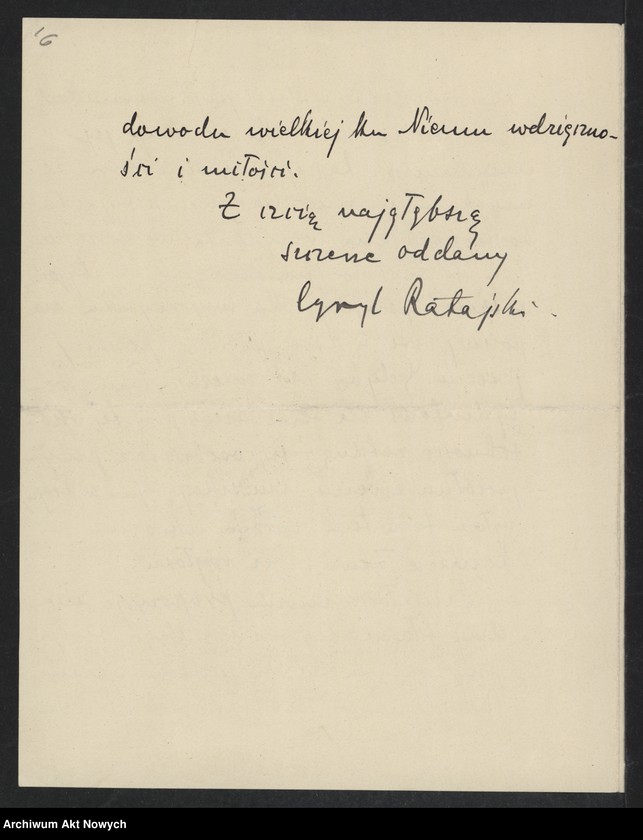 16
dowodu wielkiej ku Niemu wdzięczno-
ści i miłości.
Z czcią najgłębszą
szczerze oddany
Cyryl Ratajski.
Archiwum Akt Nowych